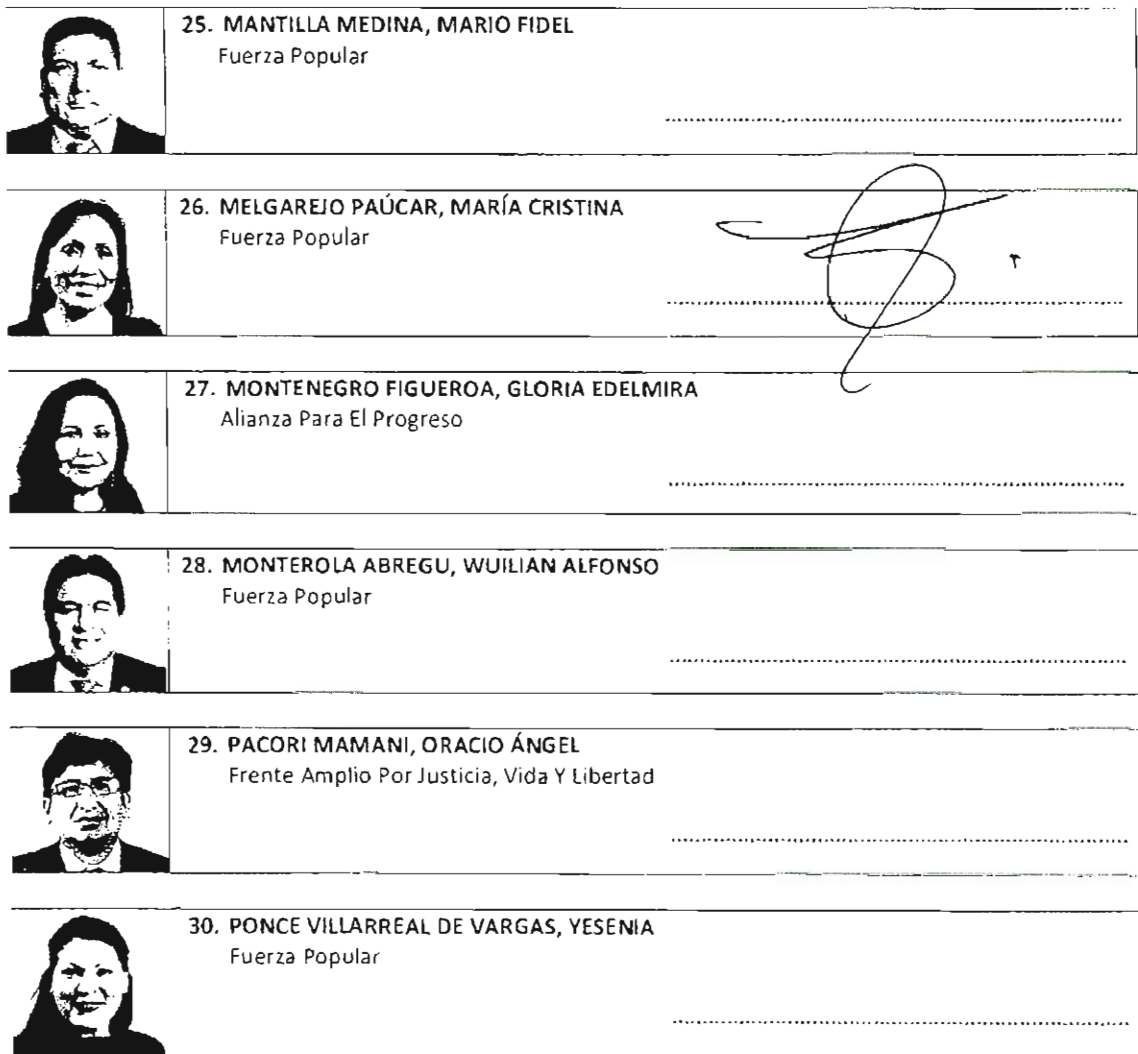 25. MANTILLA MEDINA, MARIO FIDEL
Fuerza Popular
26. MELGAREJO PAÚCAR, MARÍA CRISTINA
Fuerza Popular
27. MONTENEGRO FIGUEROA, GLORIA EDELMIRA
Alianza Para El Progreso
28. MONTEROLA ABREGU, WUILIAN ALFONSO
Fuerza Popular
29. PACORI MAMANI, ORACIO ÁNGEL
Frente Amplio Por Justicia, Vida Y Libertad
30. PONCE VILLARREAL DE VARGAS, YESENIA
Fuerza Popular